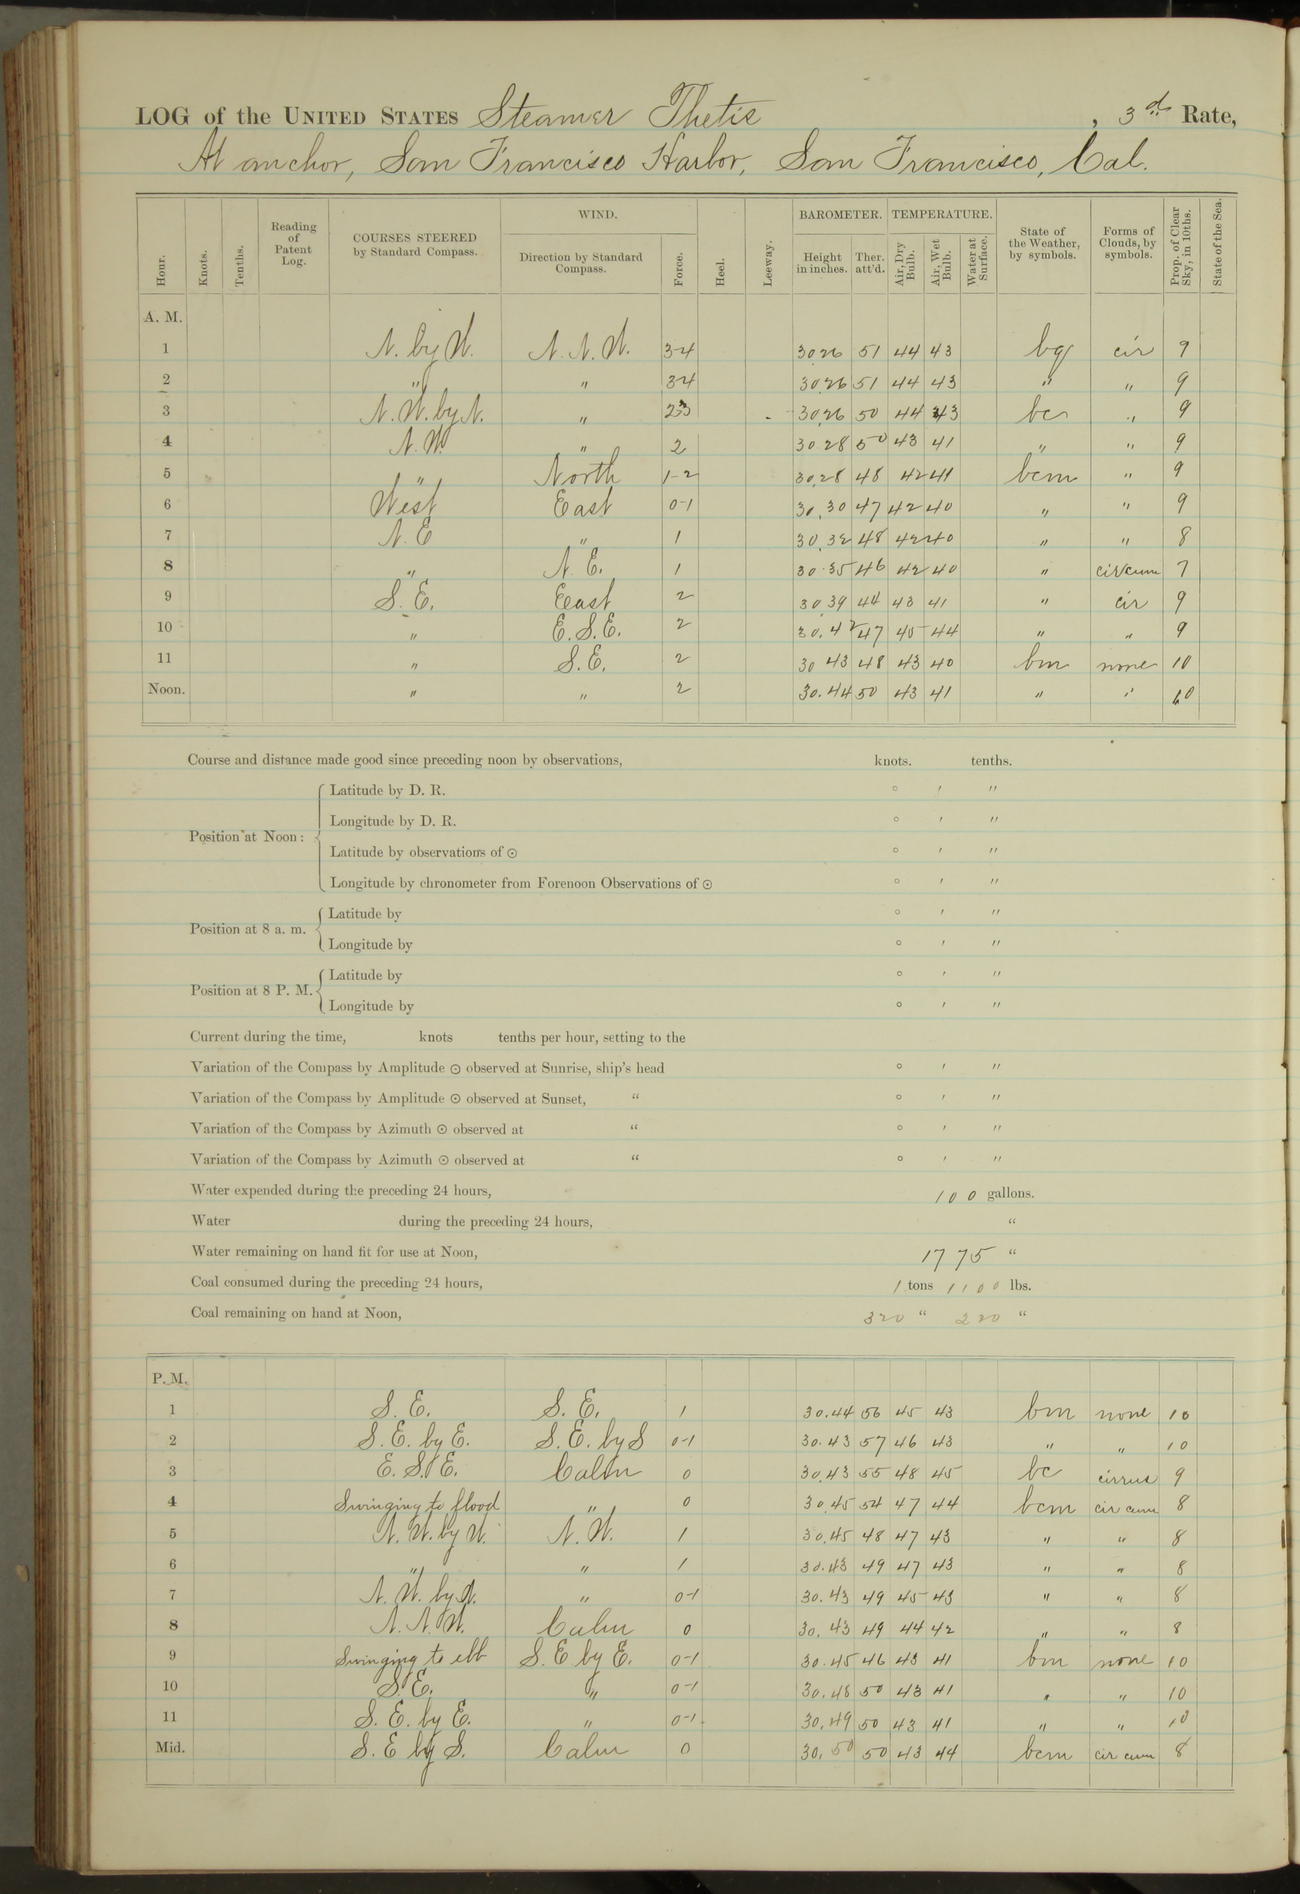 LOG of the UNITED STATES Steamer Thetis , 3d Rate,
At anchor, San Francisco Harbor, San Francisco, Cal.
Hour. Knots. Tenths. Reading of Patent Log. COURSES STEERED by Standard Compass. WIND. Direction by Standard Compass. Force. Heel. Leeway. BAROMETER. Height in inches. Ther. att'd. TEMPERATURE. Air, Dry Bulb. Air, Wet Bulb. Water at Surface. State of the Weather, by symbols. Forms of Clouds, by symbols. Prop. of Clear Sky, in 10ths. State of the Sea.
A. M.
1 N. by W. N. N. W. 3-4 30 26 51 44 43 bq cir 9
2 " " 3-4 30.26 51 44 43 " " 9
3 N. W. by N. " 2-3 30.26 50 44 43 bc " 9
4 N. W. " 2 30 28 50 43 41 " " 9
5 " North 1-2 30.28 48 42 41 bcm " 9
6 West East 0-1 30.30 47 42 40 " " 9
7 N. E " 1 30.32 48 42 40 " " 8
8 " N. E. 1 30.35 46 42 40 " cir cum 7
9 S. E. East 2 30.39 44 43 41 " cir 9
10 " E. S. E. 2 30.42 47 45 44 " " 9
11 " S. E. 2 30 43 48 43 40 bm none 10
Noon. " " 2 30.44 50 43 41 " " 10
Course and distance made good since preceding noon by observations, knots. tenths.
Position at Noon:
Latitude by D. R. ° ′ ″
Longitude by D. R. ° ′ ″
Latitude by observations of ⊙ ° ′ ″
Longitude by chronometer from Forenoon Observations of ⊙ ° ′ ″
Position at 8 a. m.
Latitude by ° ′ ″
Longitude by ° ′ ″
Position at 8 P. M.
Latitude by ° ′ ″
Longitude by ° ′ ″
Current during the time, knots tenths per hour, setting to the
Variation of the Compass by Amplitude ⊙ observed at Sunrise, ship's head ° ′ ″
Variation of the Compass by Amplitude ⊙ observed at Sunset, " ° ′ ″
Variation of the Compass by Azimuth ⊙ observed at " ° ′ ″
Variation of the Compass by Azimuth ⊙ observed at " ° ′ ″
Water expended during the preceding 24 hours, 100 gallons.
Water during the preceding 24 hours, "
Water remaining on hand fit for use at Noon, 1775 "
Coal consumed during the preceding 24 hours, 1 tons 1100 lbs.
Coal remaining on hand at Noon, 320 " 220 "
P. M.
1 S. E. S. E. 1 30.44 56 45 43 bm none 10
2 S. E. by E. S. E. by S 0-1 30.43 57 46 43 " " 10
3 E. S. E. Calm 0 30.43 55 48 45 bc cirrus 9
4 Swinging to flood " 0 30.45 54 47 44 bcm cir cum 8
5 N. W. by W. N. W. 1 30.45 48 47 43 " " 8
6 " " 1 30.43 49 47 43 " " 8
7 N. W. by N. " 0-1 30.43 49 45 43 " " 8
8 N. N. W. Calm 0 30.43 49 44 42 " " 8
9 Swinging to ebb S. E by E. 0-1 30.45 46 43 41 bm none 10
10 S. E. " 0-1 30.48 50 43 41 " " 10
11 S. E. by E. " 0-1 30.49 50 43 41 " " 10
Mid. S. E by S. Calm 0 30.50 50 43 44 bcm cir cum 8